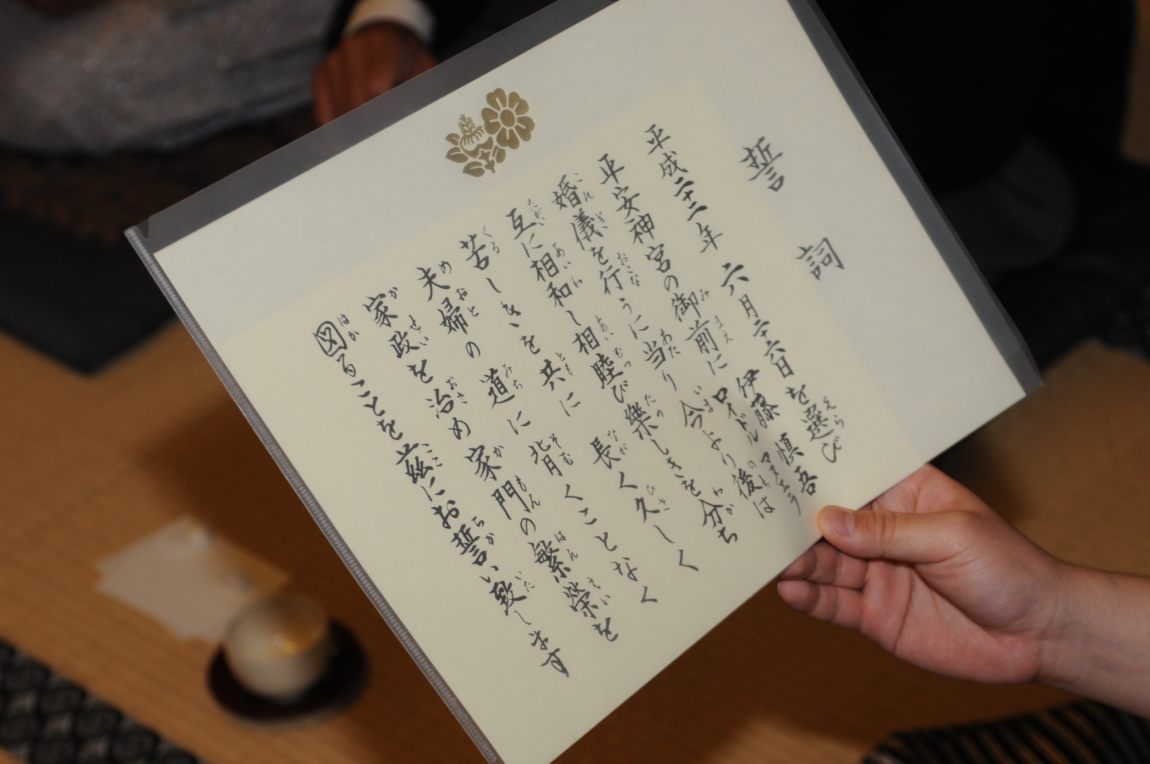 誓詞
平成二十二年 六月二十六日を選び
平安神宮の御前に 伊藤 慎吾
ロイドル
婚儀を行うに当り 今より後は
互に相和し相睦び樂しきを分ち
苦しきを共に 長く久しく
夫婦の道に背くことなく
家政を治め家門の繁榮を
図ることを茲にお誓い致します